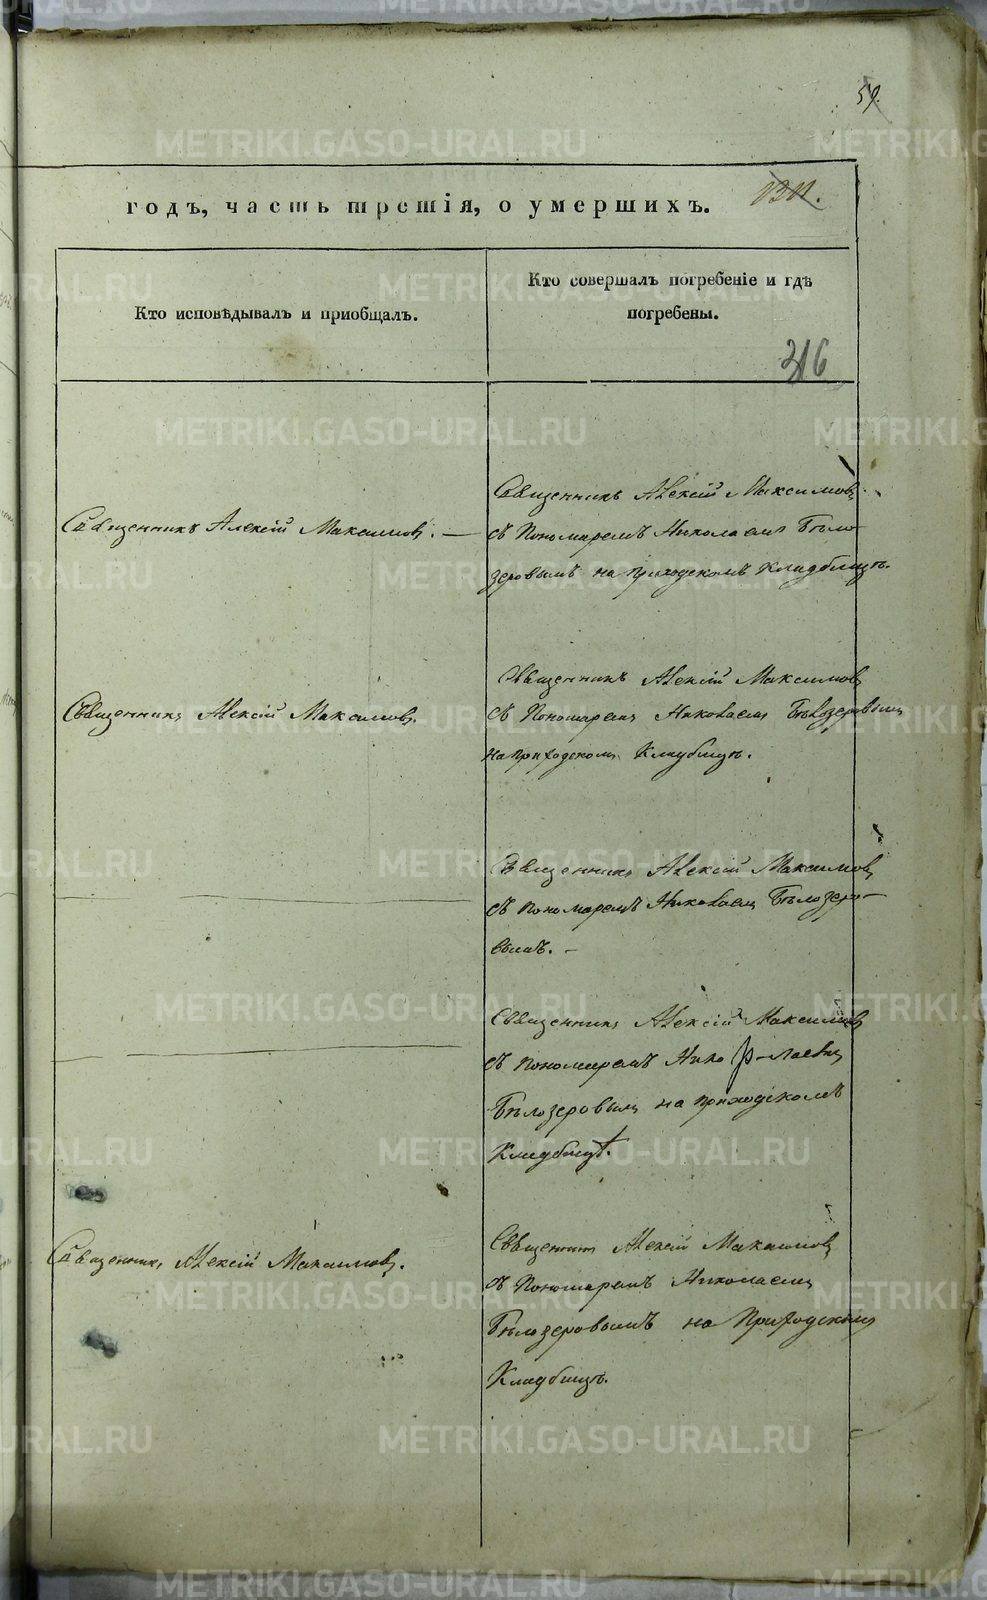 59.
годъ, часть третія, о умершихъ.
Кто исповѣдывалъ и пріобщалъ.
Кто совершалъ погребеніе и гдѣ
погребены.
316
Священникъ Алексій Максимовъ
Священникъ Алексій Максимовъ. —
съ Пономаремъ Николаемъ Бѣло-
зеровымъ на приходскомъ кладбищѣ.
Священникъ Алексій Максимовъ
Священникъ Алексій Максимовъ.
съ Пономаремъ Николаемъ Бѣлозеровымъ
на приходскомъ Кладбищѣ.
Священникъ Алексій Максимовъ
съ Пономаремъ Николаемъ Бѣлозеро-
вымъ. –
Священникъ Алексій Максимовъ
съ Пономаремъ Нико-лаемъ
Бѣлозеровымъ на приходскомъ
Кладбищѣ.
Священникъ Алексій Максимовъ
Священникъ Алексій Максимовъ.
съ Пономаремъ Николаемъ
Бѣлозеровымъ на Приходскомъ
Кладбищѣ.
METRIKI.GASO-URAL.RU